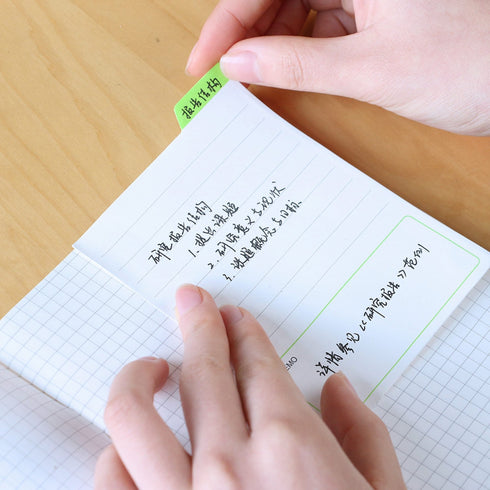 报告结构
研究报告结构
1. 提出课题
2. 研究意义与现状
3. 课题概念与目标
详情参见《研究报告》范例
EMO